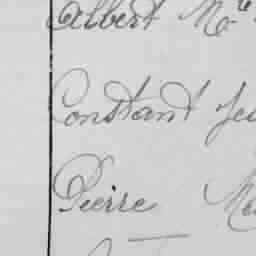 Albert M
Constant
Pierre